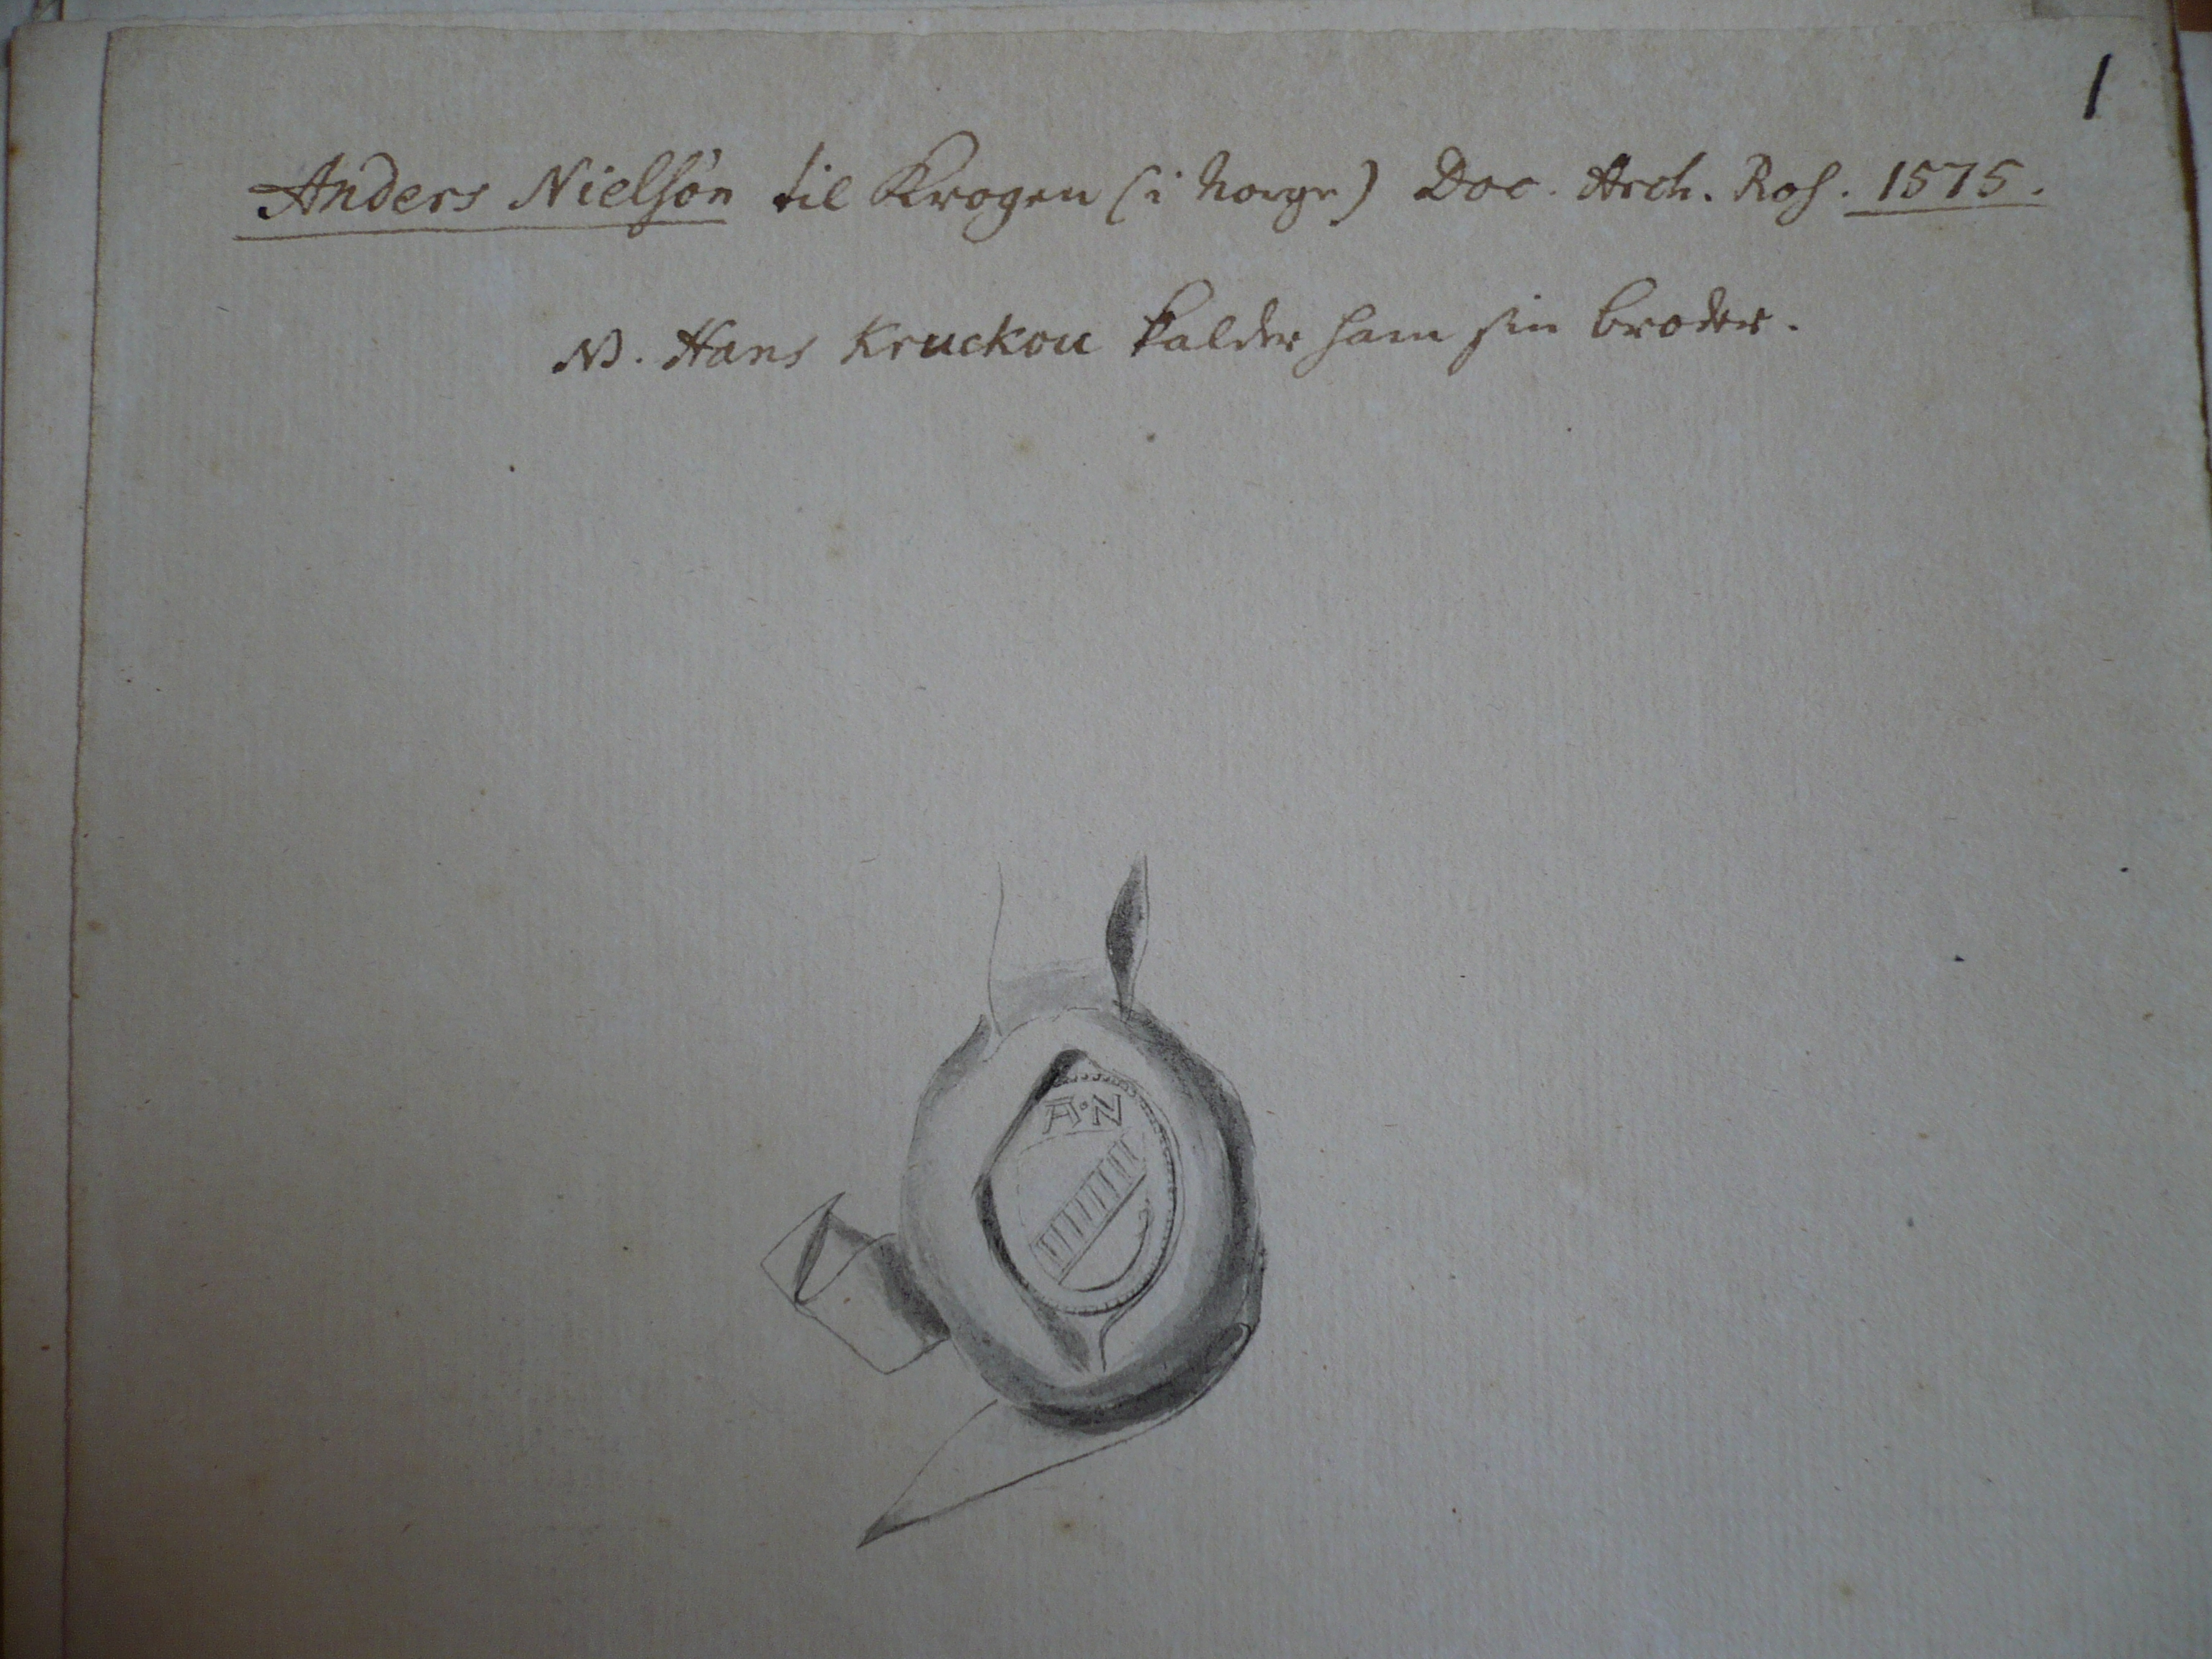 1
Anders Nielsön til Krogen (i Norge) Doc. Arch. Ros. 1575.
NB. Hans Kruckou kalder ham sin broder.
A·N